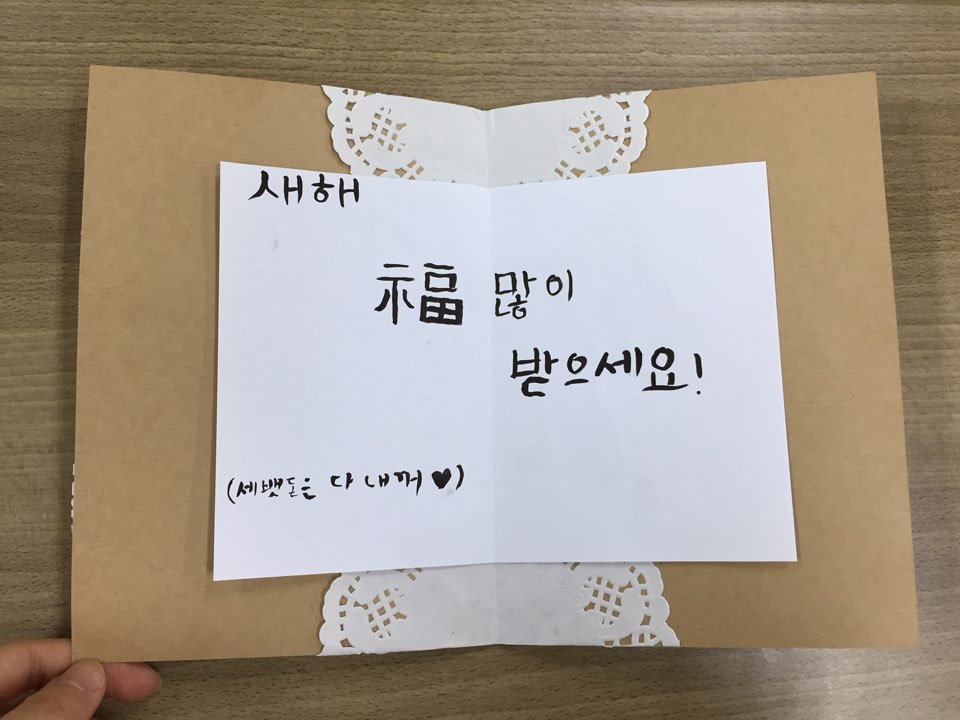 새해
福 많이
받으세요!
(세뱃돈은 다 내꺼 ♥)